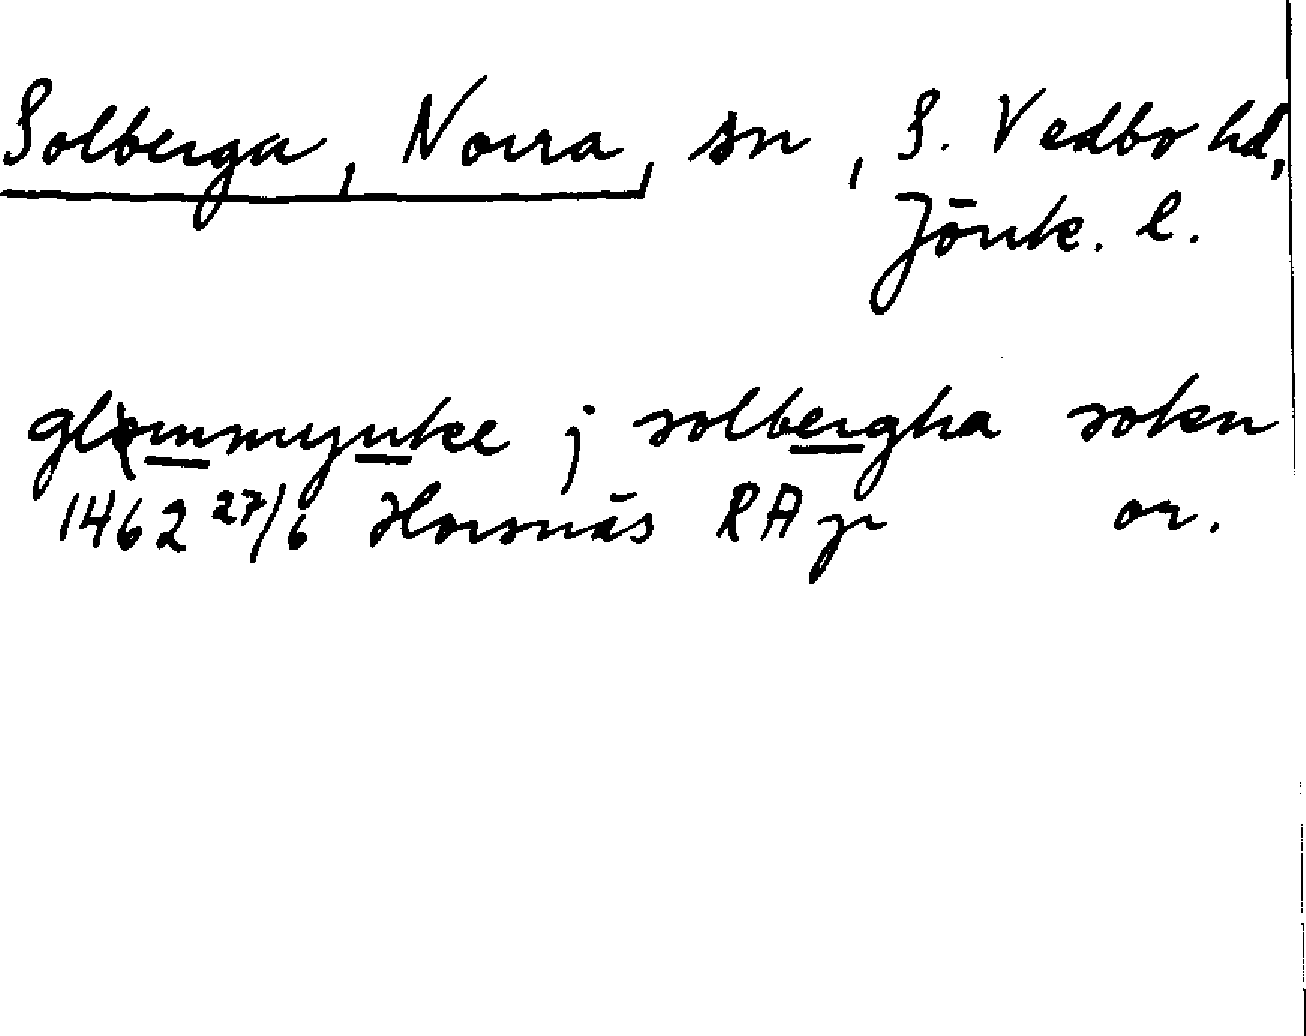 Solberga, Norra, sn, S. Vedbo hd,
Jönk. l.
glømmynke j solbergha sokn
1462 27/6 Horsnäs RAp or.